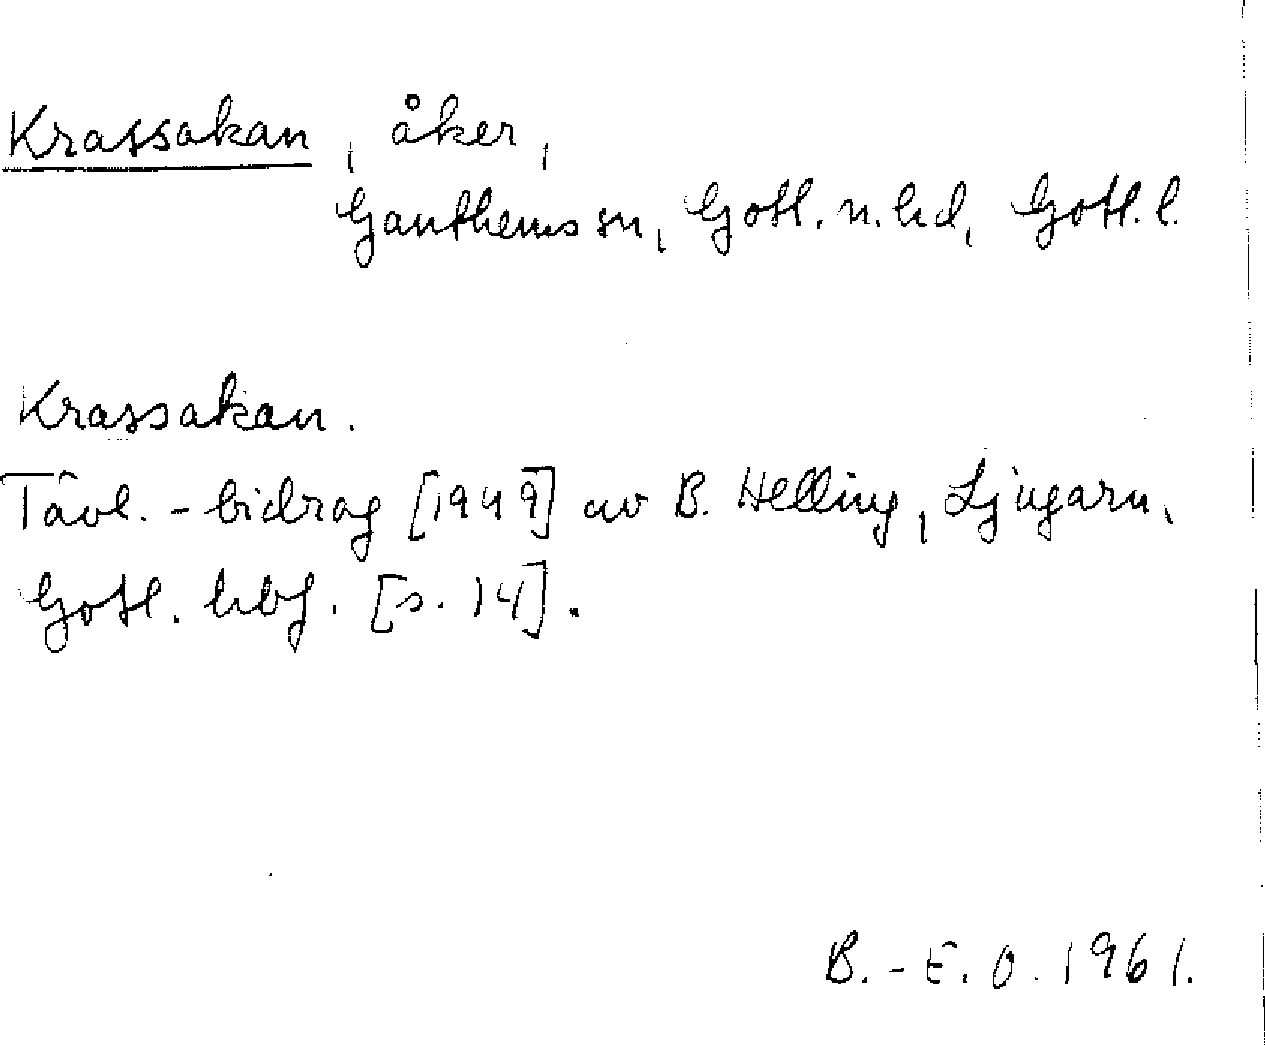 Krassakan, åker,
Ganthems sn, Gotl. n. hd, Gotl. l.
Krassakan.
Tävl.-bidrag [1949] av B. Helling, Ljugarn,
Gotl. hbf. [s. 14].
B.-E. O. 1961.